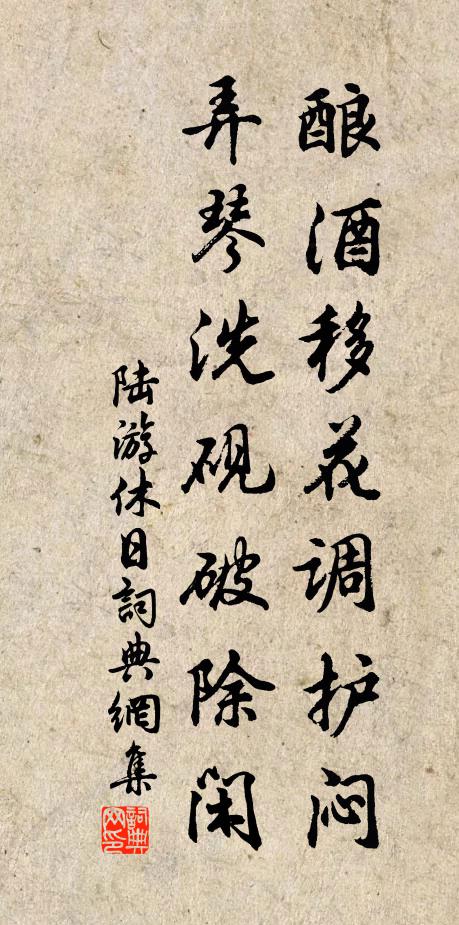 酿酒移花调护闷
弄琴洗砚破除闲
陆游休日詞典網集
詞典网印